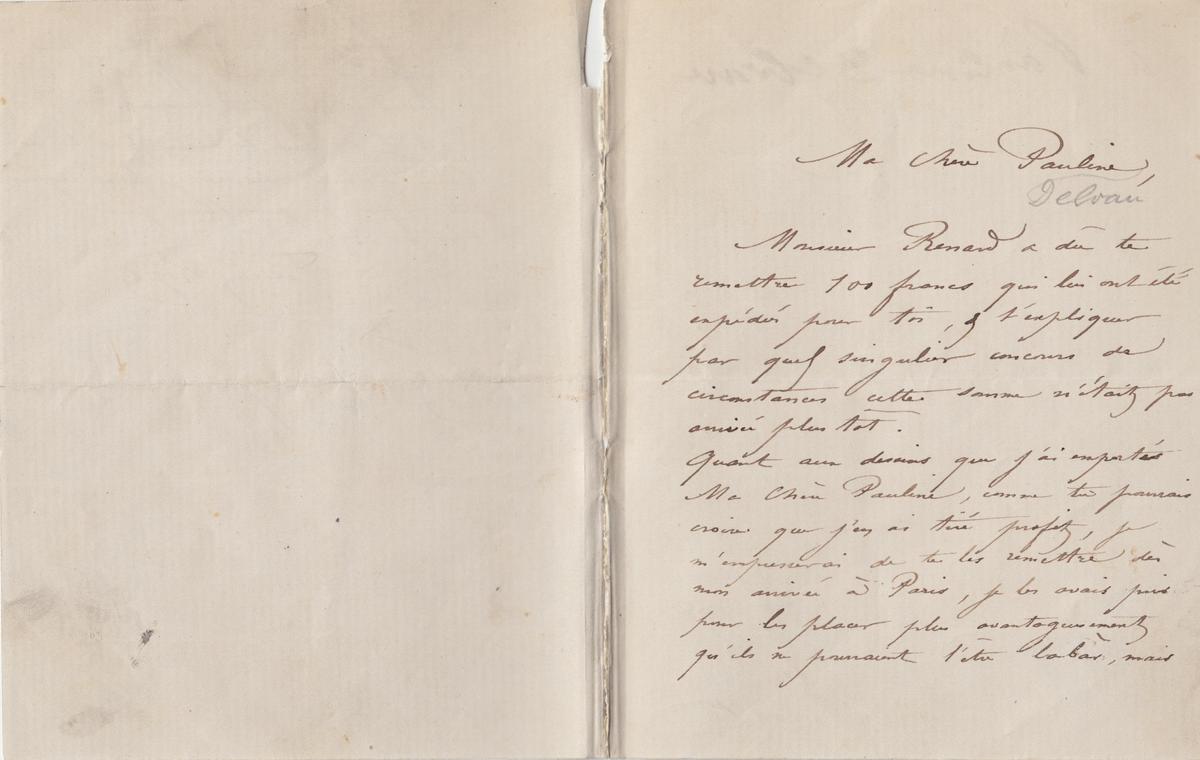 Ma Chère Pauline,
Delvau
Monsieur Renard a dû te
remettre 100 francs qui lui ont été
expédiés pour toi, & t'expliquer
par quel singulier concours de
circonstances cette somme n'était pas
arrivée plus tôt.
Quant aux dessins que j'ai emportés
Ma Chère Pauline, comme tu pourrais
croire que j'en ai tiré profit, je
m'empresserai de te les remettre dès
mon arrivée à Paris, je les avais pris
pour les placer plus avantageusement
qu'ils ne pourraient l'être labàs, mais